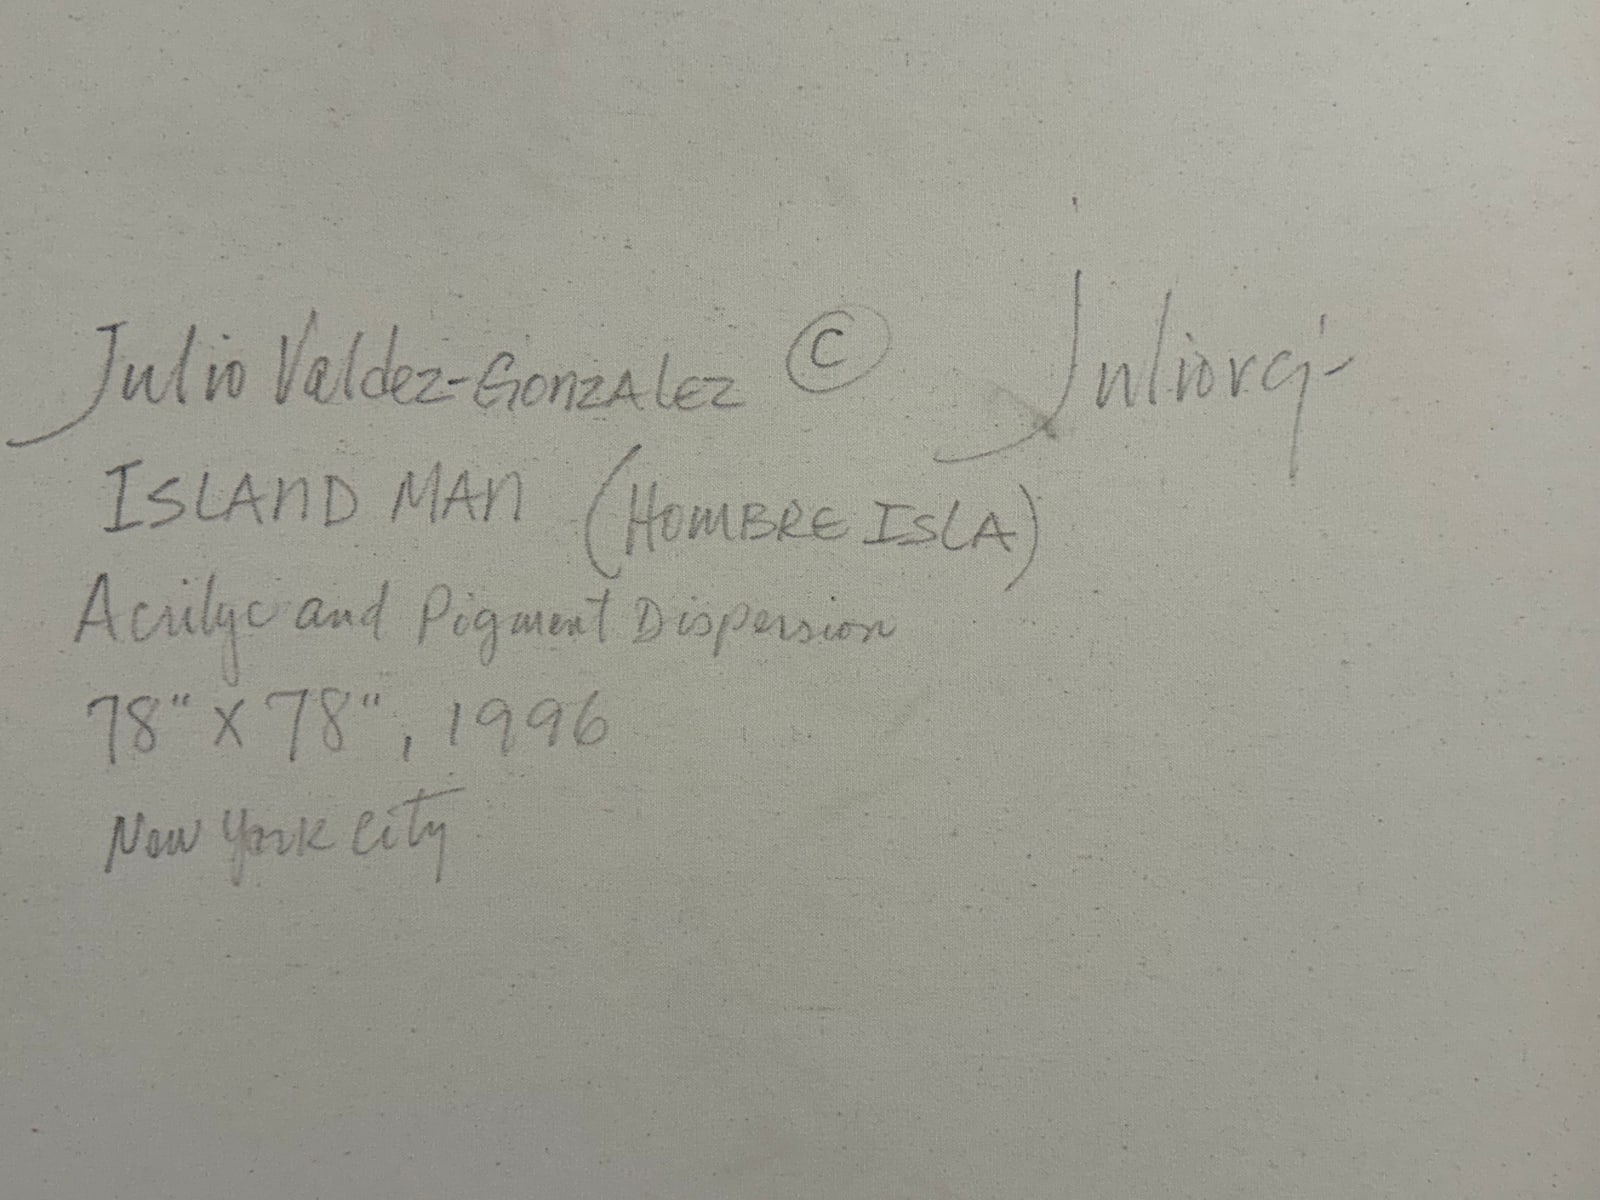 Julio Valdez-Gonzalez © Juliovg
ISLAND MAN (HOMBRE ISLA)
Acrilyc and Pigment Dispersion
78" X 78", 1996
New York City